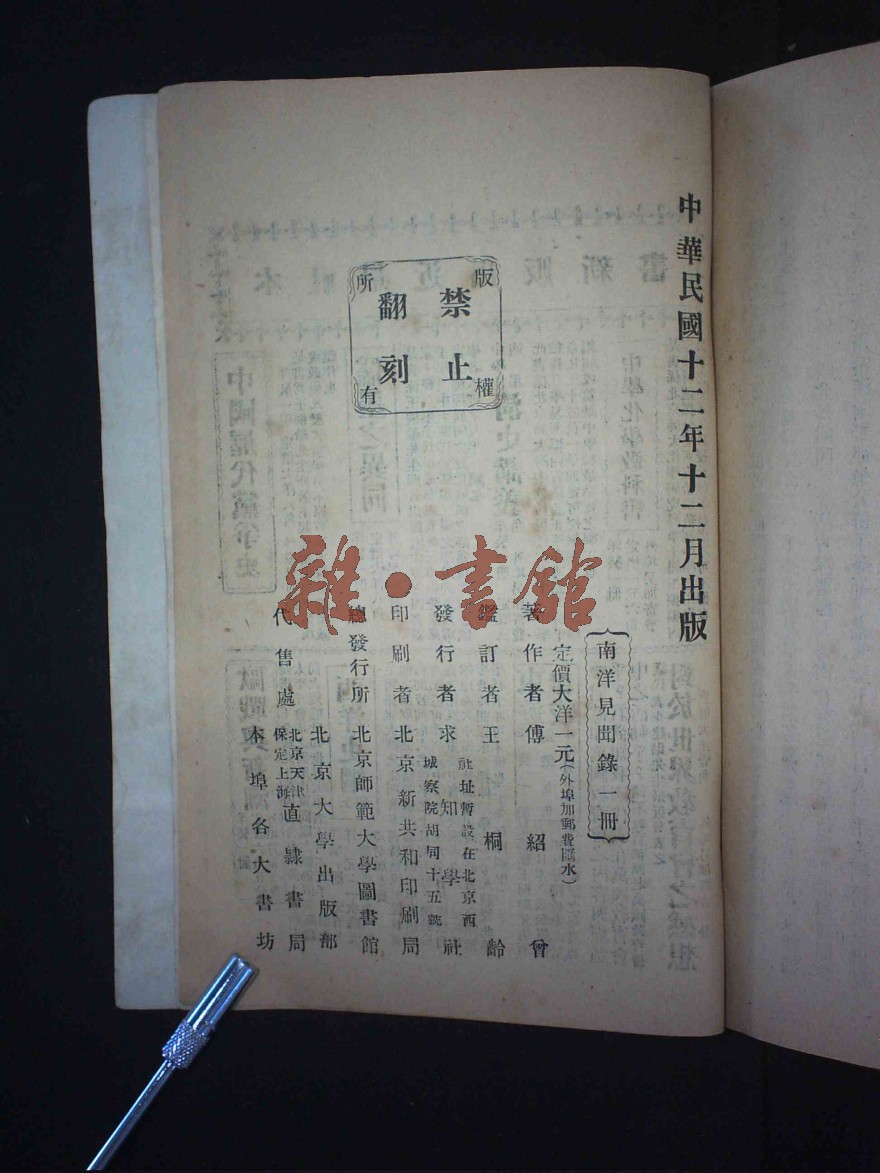 中華民國十二年十二月出版
版權所有
禁止
翻刻
南洋見聞錄一冊
定價大洋一元(外埠加郵費匯水)
著作者傅紹曾
鑑訂者王桐齡
發行者求知學社
社址暫設在北京西
城察院胡同十五號
印刷者北京新共和印刷局
總發行所北京師範大學圖書館
代售處
北京大學出版部
北京天津
保定上海
直隸書局
本埠各大書坊
雜·書館